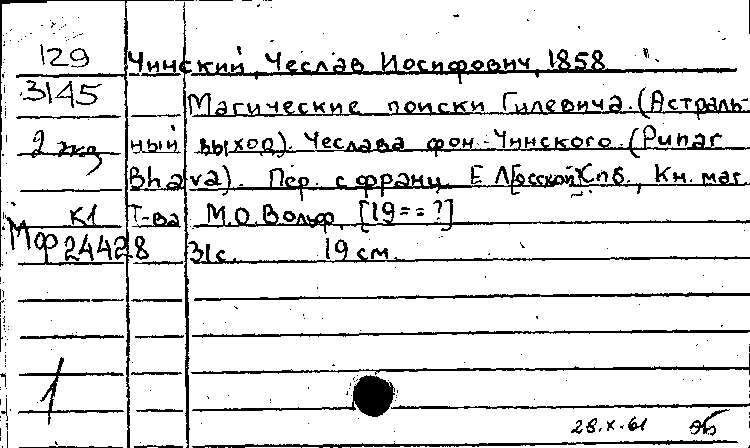 129 Чинский, Чеслав Иосифович, 1858
3145 Магические поиски Гилевича. (Астраль-
2 экз ный выход). Чеслава фон-Чинского. (Punar
Bhava). Пер. с франц. Е Л[осской] Спб., Кн. маг.
К1 Т-ва М.О. Вольф, [19==?]
Мф 24428 31с. 19 см.
1
28.X.61